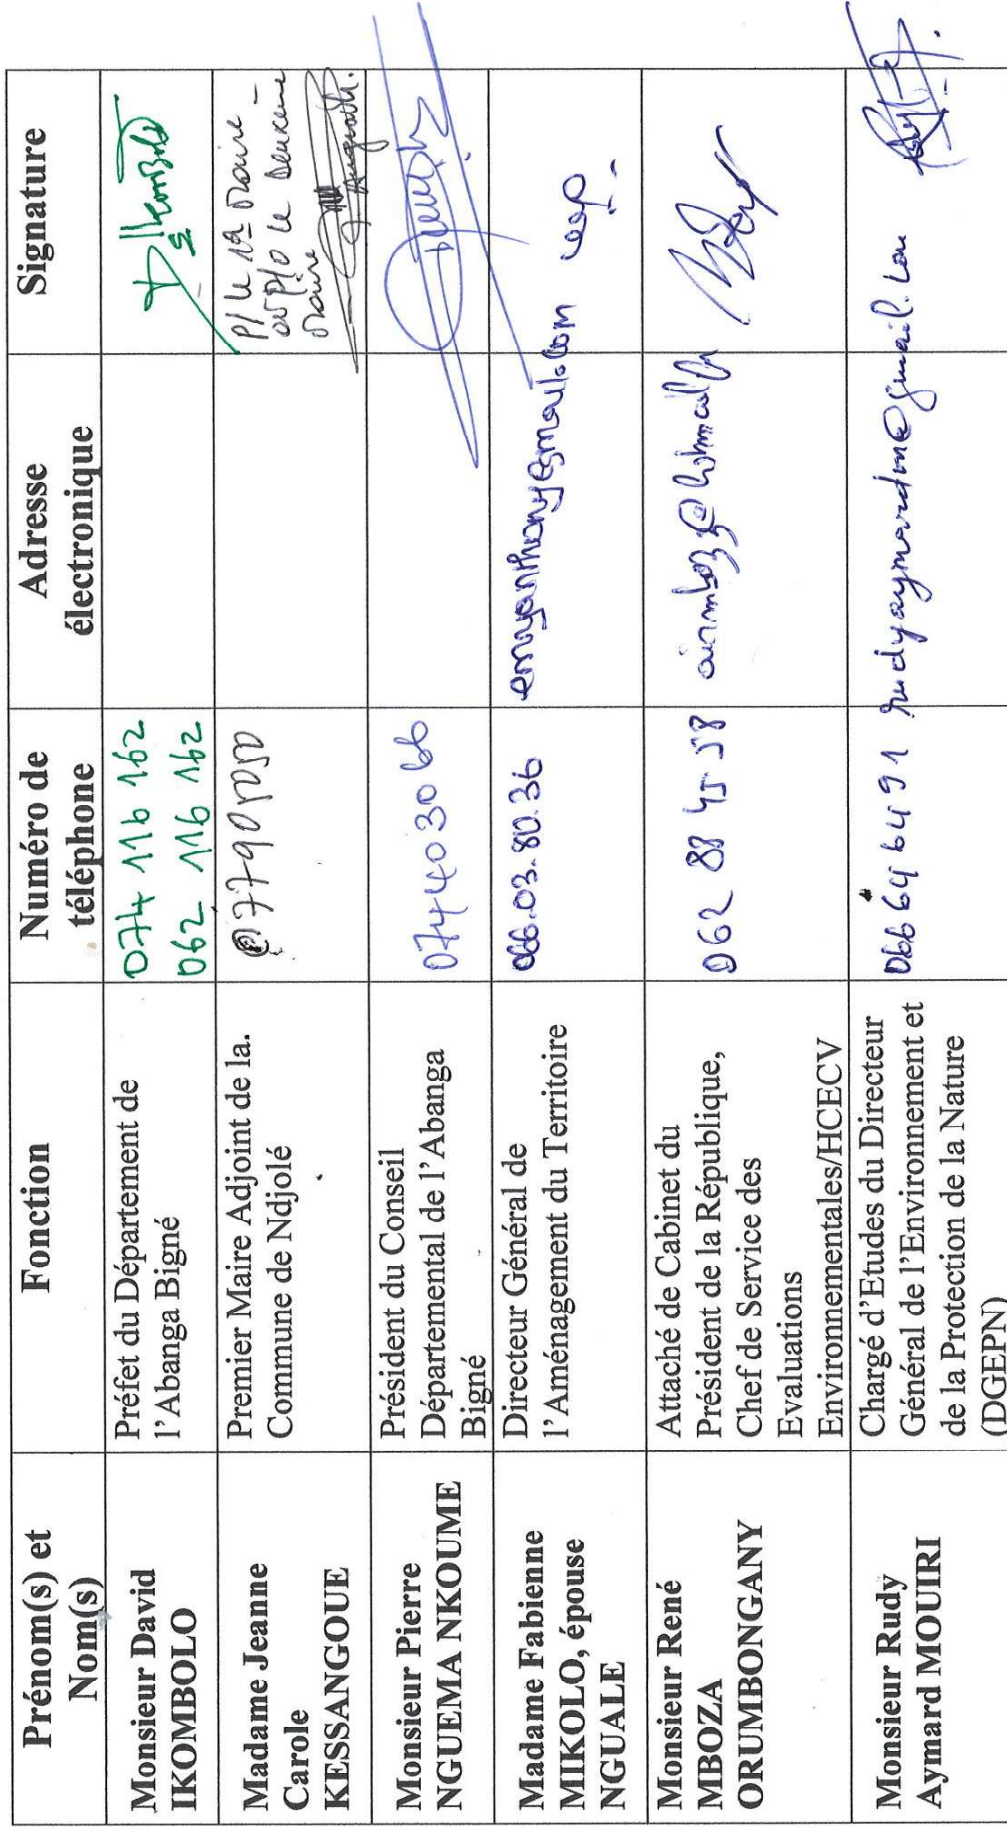 Prénom(s) et
Nom(s)
Fonction
Numéro de
téléphone
Adresse
électronique
Signature
Monsieur David
IKOMBOLO
Préfet du Département de
l'Abanga Bigné
074 116 162
062 116 162
Madame Jeanne
Carole
KESSANGOUE
Premier Maire Adjoint de la.
Commune de Ndjolé
P/ le 1er Maire
le deuxième
Maire
Monsieur Pierre
NGUEMA NKOUME
Président du Conseil
Départemental de l'Abanga
Bigné
074403066
Madame Fabienne
MIKOLO, épouse
NGUALE
Directeur Général de
l'Aménagement du Territoire
066.03.80.36
Monsieur René
MBOZA
ORUMBONGANY
Attaché de Cabinet du
Président de la République,
Chef de Service des
Evaluations
Environnementales/HCECV
062 88 45 58
Monsieur Rudy
Aymard MOUIRI
Chargé d'Etudes du Directeur
Général de l'Environnement et
de la Protection de la Nature
(DGEPN)
066 64 64 91